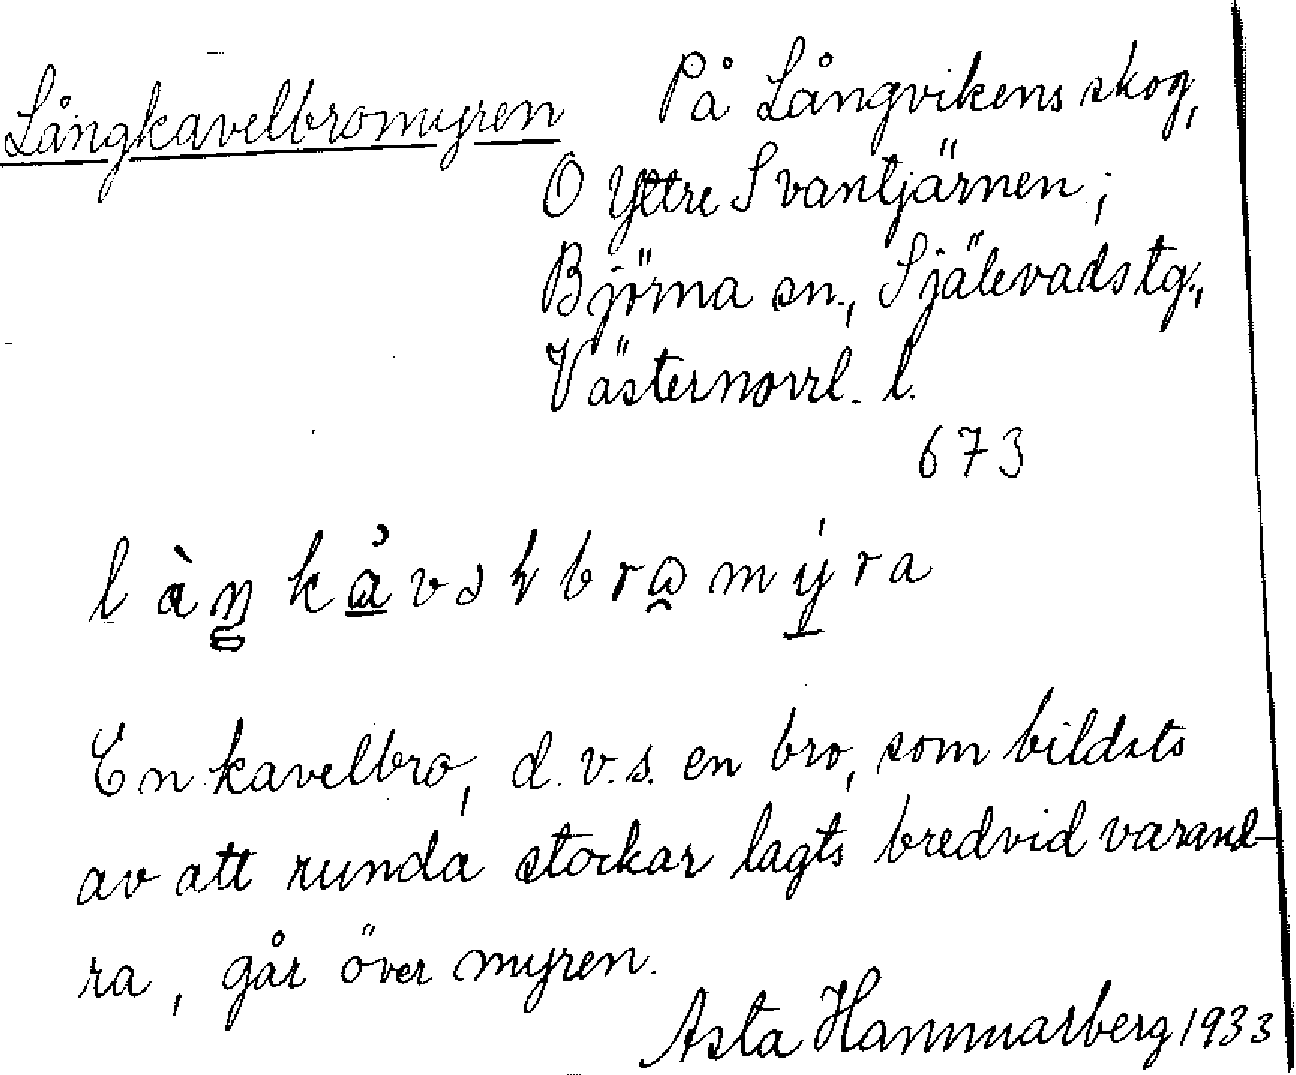 Långkavelbromyren
På Långvikens skog,
O Yttre Svantjärnen;
Björna sn., Själevads tg.,
Västernorrl. l.
673
En kavelbro, d.v.s. en bro, som bildats
av att runda stockar lagts bredvid varand-
ra, går över myren.
Asta Hammarberg 1933